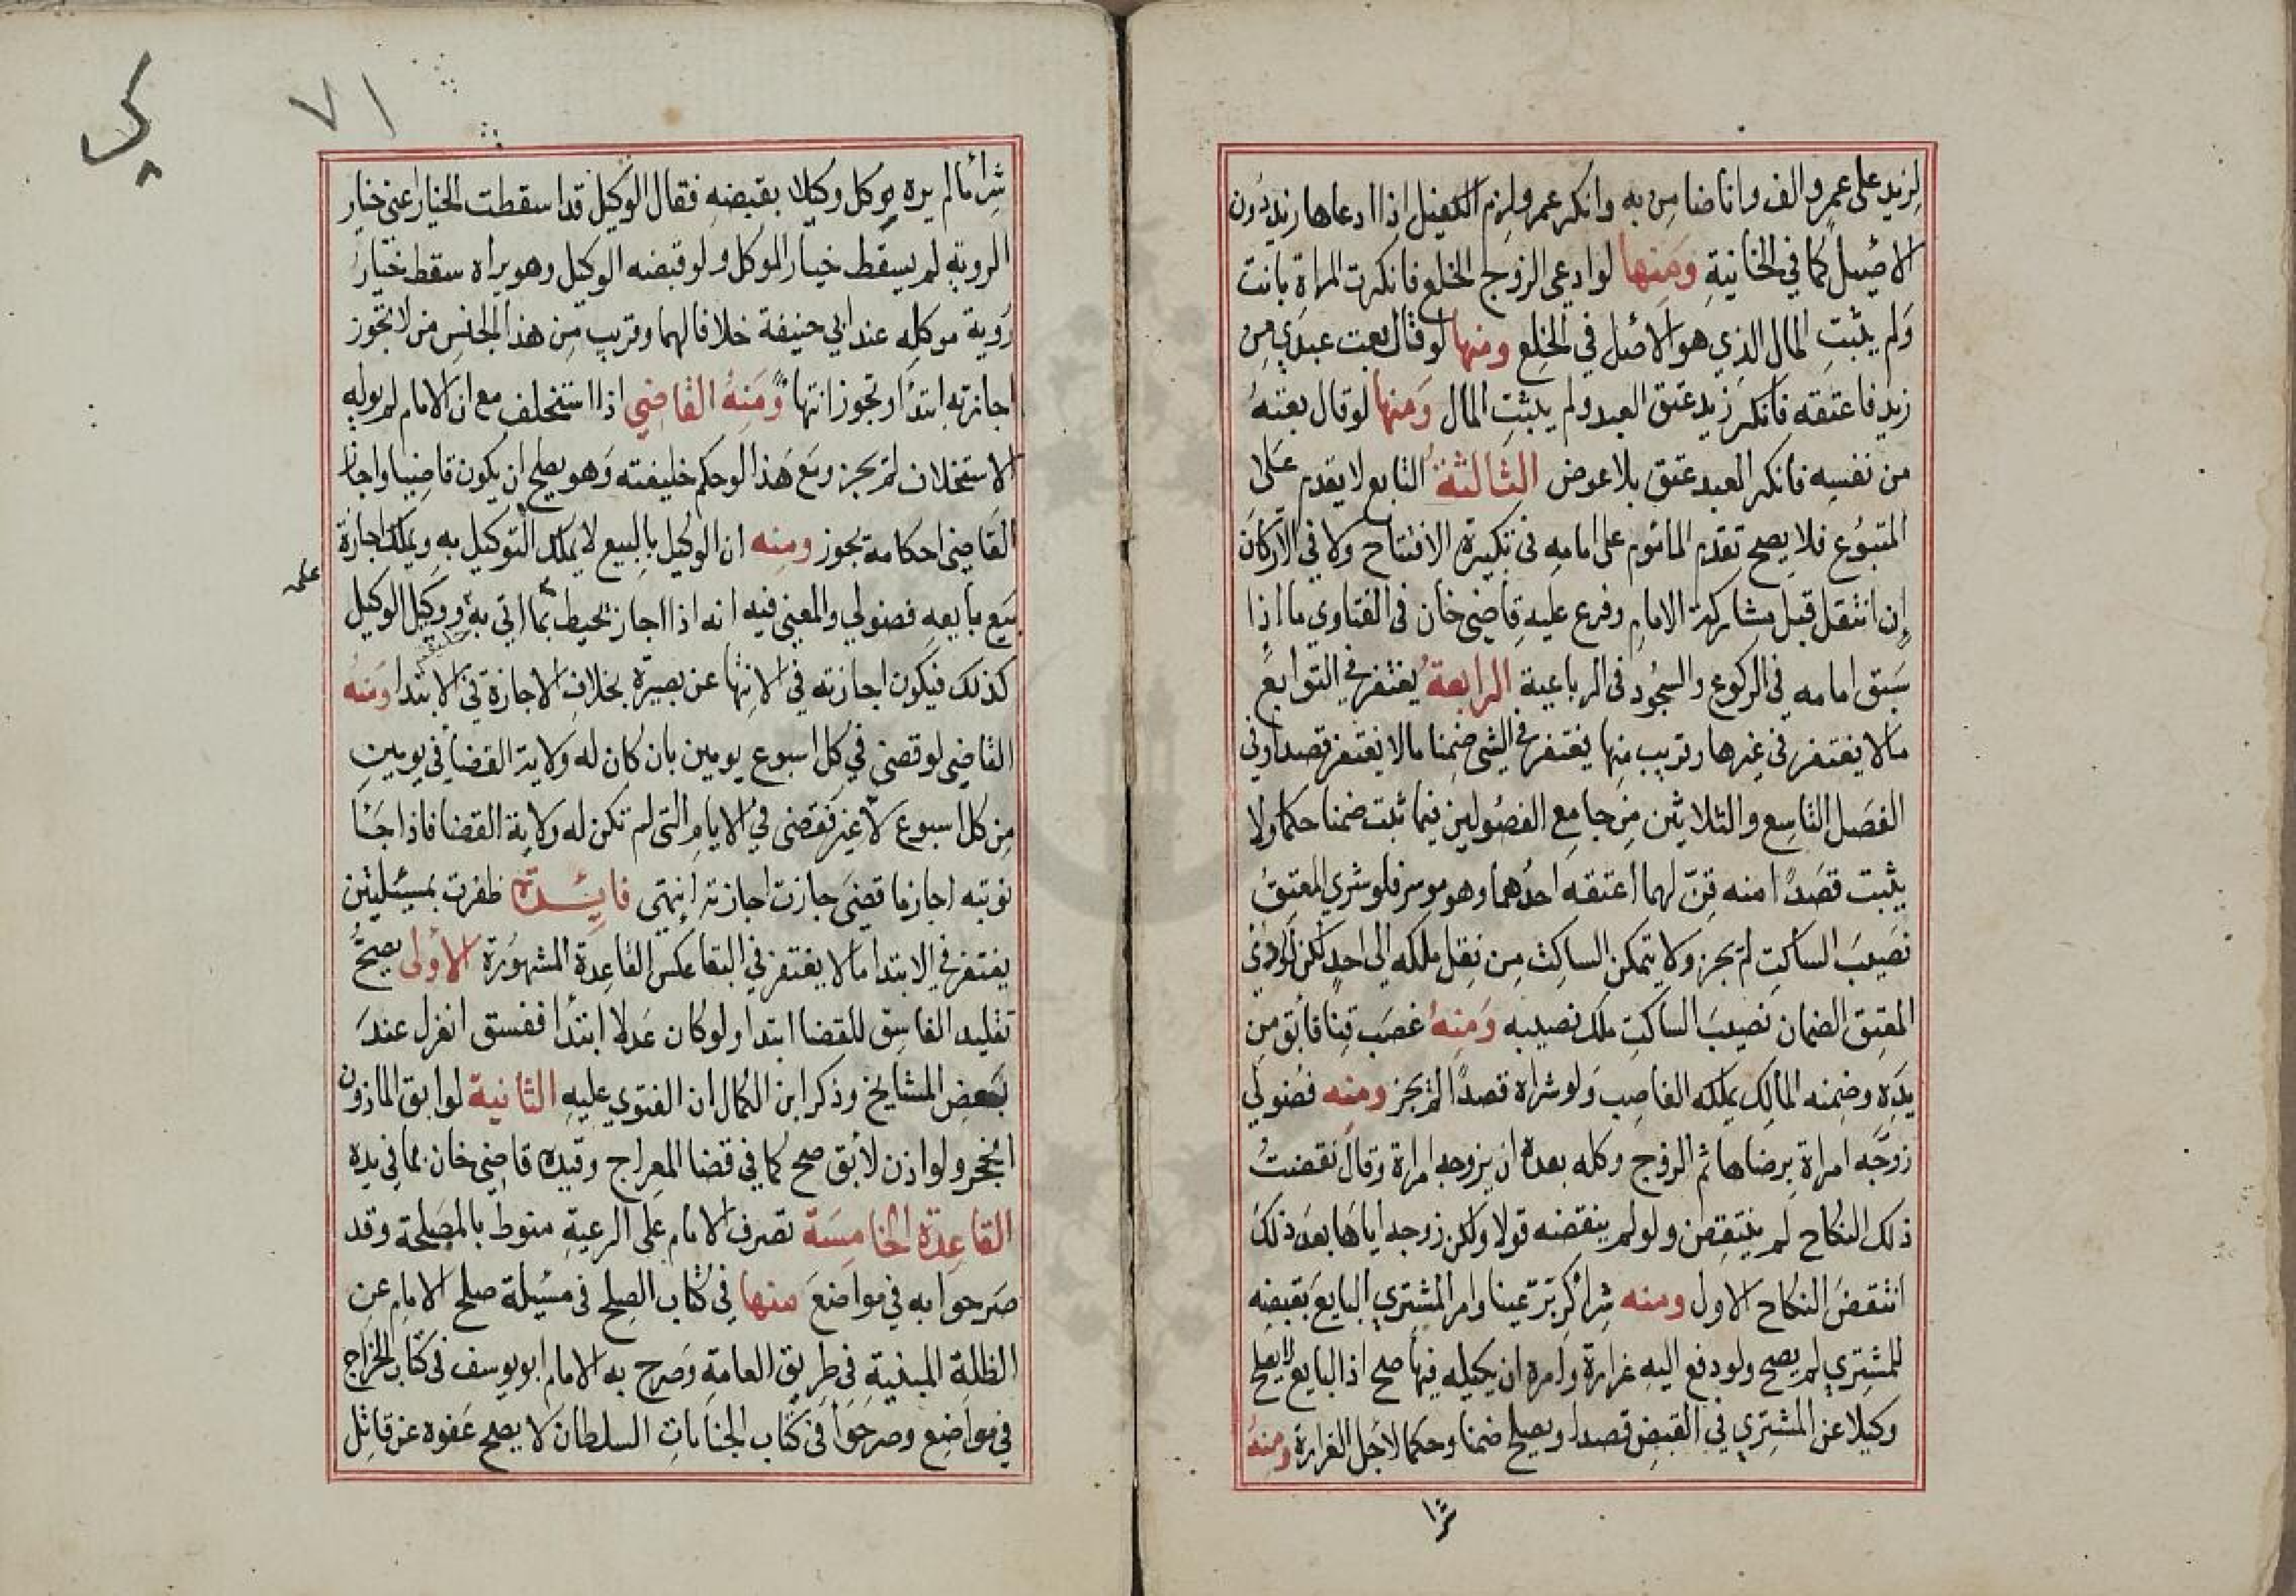 لزيد على عمرو الف وانا ضامن به وانكر عمرو لزم الكفيل اذا ادعاها زيد دون
الاصيل كما في الخانية ومنها لو ادعى الزوج الخلع فانكرت المراة بانت
ولم يثبت المال الذي هو الاصل في الخلع ومنها لو قال بعت عبدي من
زيد فاعتقه فانكر زيد عتق العبد ولم يثبت المال ومنها لو قال بعته
من نفسه فانكر العبد عتق بلا عوض الثالثة التابع لا يقدم على
المتبوع فلا يصح تقدم الماموم على امامه في تكبيرة الافتتاح ولا في الاركان
ان انتقل قبل مشاركة الامام وفرع عليه قاضي خان في الفتاوي ما اذا
سبق امامه في الركوع والسجود في الرباعية الرابعة يغتفر في التوابع
مالا يغتفر في غيرها وقريب منها يغتفر في الشي ضمنا مالا يغتفر قصدا وفي
الفصل التاسع والثلاثين من جامع الفصولين فيما ثبت ضمنا حكما ولا
يثبت قصدا منه قن لهما اعتقه احدهما وهو موسر فلو شري المعتق
نصيب الساكت لم يجز ولا يتمكن الساكت من نقل ملكه الى احد لكن لو ادى
المعتق الضمان نصيب الساكت ملك نصيبه ومنه غصب قنا فابق من
يده وضمنه المالك يملكه الغاصب ولو شراه قصدا لم يجز ومنه فضولي
زوجه امراة برضاها ثم الزوج وكله بعده ان يزوجه امراة وقال نقضت
ذلك النكاح لم ينتقض ولو لم ينقضه قولا ولكن زوجه اياها بعد ذلك
انتقض النكاح الاول ومنه شرا كر بر عينا وامر المشتري البايع بقبضه
للمشتري لم يصح ولو دفع اليه غرارة وامره ان يكيله فيها صح اذ البايع لا يصلح
وكيلا عن المشتري في القبض قصدا ويصلح ضمنا وحكما لاجل الغرارة ومنه
شرا
٧١
شرا ما لم يره يوكل وكيلا بقبضه فقال الوكيل قد اسقطت الخيار اعني خيار
الروية لم يسقط خيار الموكل ولو قبضه الوكيل وهو يراه سقط خيار
روية موكله عند ابي حنيفة خلافا لهما وقريب من هذا الجنس من لا تجوز
اجازته ابتدا وتجوز انتها ومنه القاضي اذا استخلف مع ان الامام لم يوله
الاستخلاف لم يجز ومع هذا لو حكم خليفته وهو يصلح ان يكون قاضيا واجاز
القاضي احكامه يجوز ومنه ان الوكيل بالبيع لا يملك التوكيل به ويملك اجازة
بيع بايعه فضولي والمعنى فيه انه اذا اجاز يحيط بما اتى به ووكيل الوكيل
كذلك فيكون اجازته في الانتها عن بصيرة بخلاف الاجازة في الابتدا ومنه
القاضي لو قضى في كل اسبوع يومين بان كان له ولاية القضا في يومين
من كل اسبوع لا غير فقضى في الايام التي لم تكن له ولاية القضا فاذا جات
نوبته اجاز ما قضى جازت اجازته انتهى فايدة ظفرت بمسئلتين
يغتفر في الابتدا مالا يغتفر في البقا عكس القاعدة المشهورة الاولى يصح
تقليد الفاسق للقضا ابتدا ولو كان عدلا ابتدا ففسق انعزل عند
بعض المشايخ وذكر ابن الكمال ان الفتوي عليه الثانية لو ابق الماذون
انحجر ولو اذن لابق صح كما في قضا المعراج وقيده قاضي خان بما في يده
القاعدة الخامسة تصرف الامام على الرعية منوط بالمصلحة وقد
صرحوا به في مواضع منها في كتاب الصلح في مسئلة صلح الامام عن
الظلة المبنية في طريق العامة وصرح به الامام ابو يوسف في كتاب الخراج
في مواضع وصرحوا في كتاب الجنايات السلطان لا يصح عفوه عن قاتل